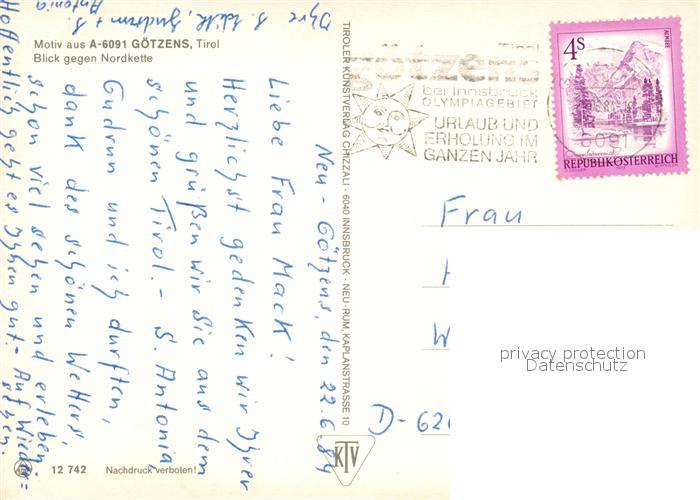 Motiv aus A-6091 GÖTZENS, Tirol
Blick gegen Nordkette
Neu-Götzens, den 22.6.84
Liebe Frau Mack!
Herzlichst gedenken wir Ihrer
und grüßen wir Sie aus dem
schönen Tirol. - S. Antonia,
Gudrun und ich durften,
dank des schönen Wetters,
schon viel sehen und erleben.
Hoffentlich geht es Ihnen gut. - Auf Wieder=
sehen.
Ihre S. Edith, Gudrun + S.
Antonia
12 742 Nachdruck verboten!
TIROLER KUNSTVERLAG CHIZZALI · 6040 INNSBRUCK - NEU-RUM, KAPLANSTRASSE 10
KTV
Tirol
götzens
bei Innsbruck
OLYMPIAGEBIET
URLAUB UND
ERHOLUNG IM
GANZEN JAHR
6091
4S
ALMSEE
REPUBLIK ÖSTERREICH
Frau
W
D-62
privacy protection
Datenschutz